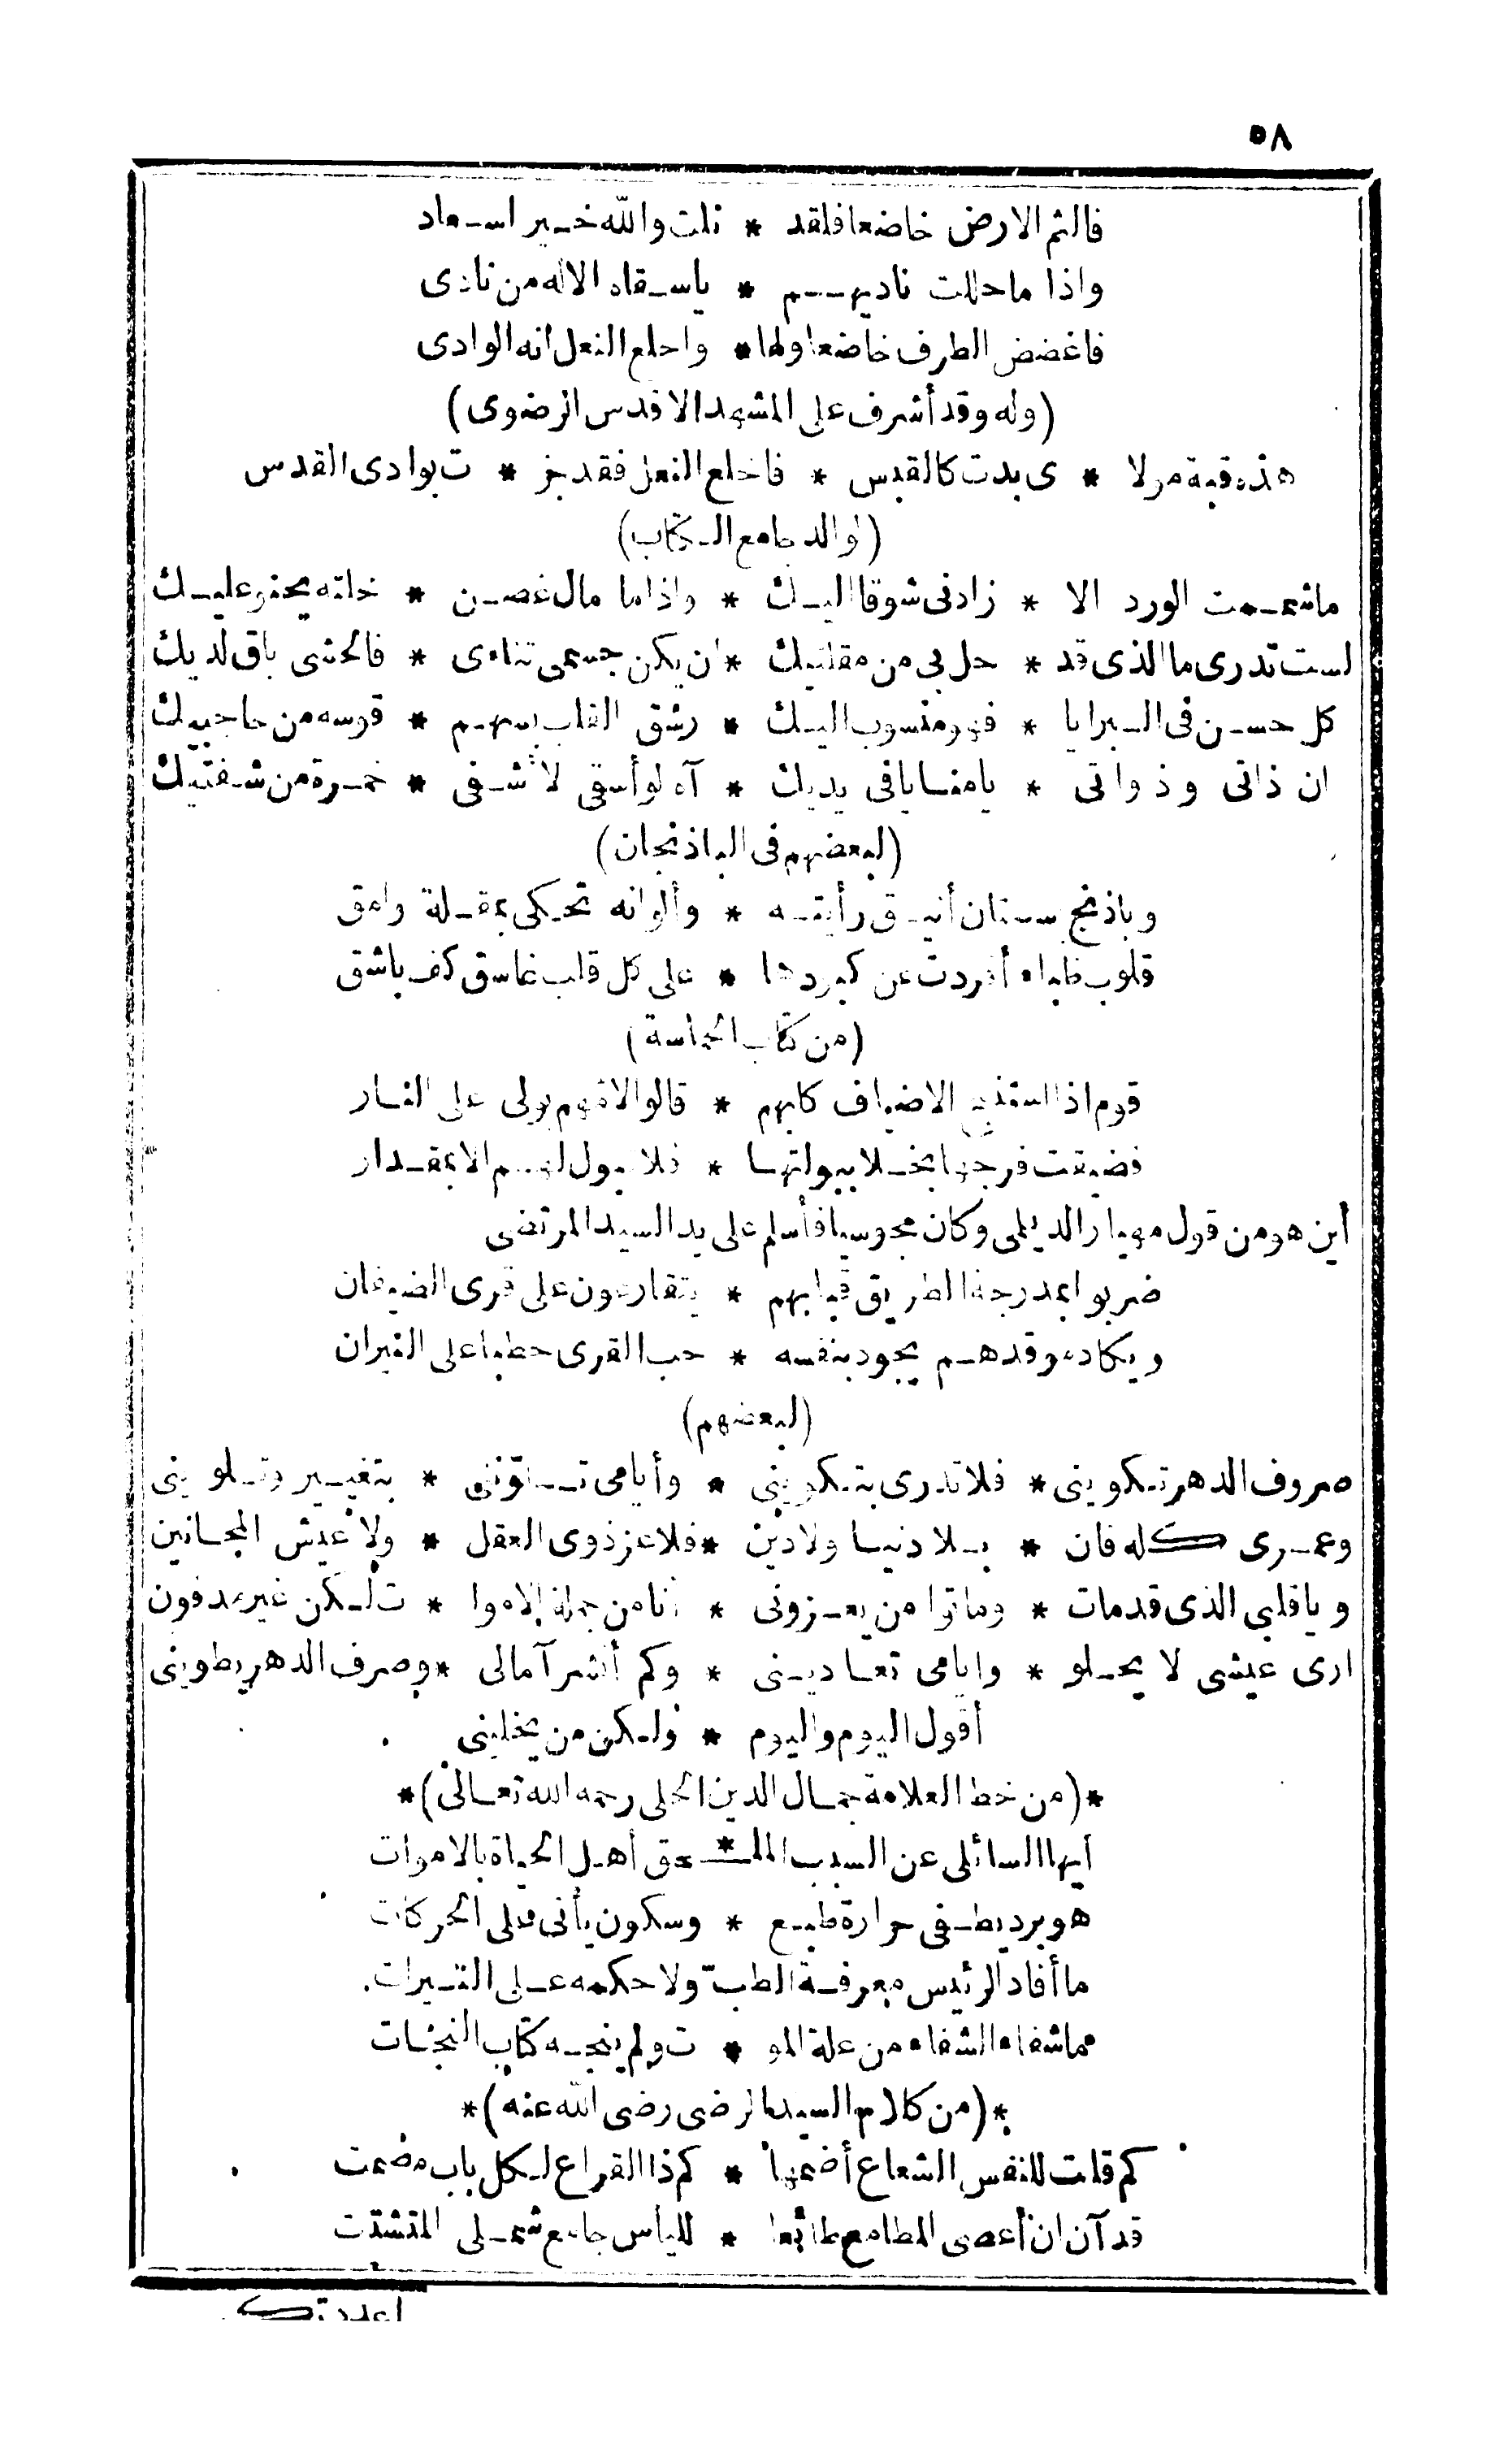 ٥٨
فالثم الارض خاضعا فلقد * نلت والله خير اسعاد
واذا ما حللت ناديهم * ياسقاه الاله من نادى
فاغضض الطرف خاضعا ولها * واخلع النعل انه الوادى
(وله وقد أشرف على المشهد الاقدس الرضوى)
هذه قبة مولا * ى بدت كالقبس * فاخلع النعل فقد جز * ت بوادى القدس
(لوالد جامع الكتاب)
ماشممت الورد الا * زادنى شوقا اليك * واذا ما مال غصن * خلته يحنو عليك
لست تدرى ما الذى قد * حل بى من مقلتيك * ان يكن جسمى تناءى * فالحشى باق لديك
كل حسن فى البرايا * فهو منسوب اليك * رشق القلب بسهم * قوسه من حاجبيك
ان ذاتى وذواتى * يا منايا فى يديك * آه لو أسقى لاشفى * خمرة من شفتيك
(لبعضهم فى الباذنجان)
وباذنج بستان أنيق رأيته * وألوانه تحكى بمقلة وامق
قلوب ظباء أفردت عن كبودها * على كل قلب غاسق كف باشق
(من كتاب الحماسة)
قوم اذا استنبح الاضياف كلبهم * قالوا لامهم بولى على النار
فضيقت فرجها بخلا ببولتها * فلا تبول لهم الا بمقدار
أين هو من قول مهيار الديلمى وكان مجوسيا فأسلم على يد السيد المرتضى
ضربوا بمدرجة الطريق قبابهم * يتقارعون على قرى الضيفان
ويكاد موقدهم يجود بنفسه * حب القرى حطبا على النيران
(لبعضهم)
صروف الدهر تكوينى * فلا تدرى بتكوينى * وأيامى تلوننى * بتغيير وتلوينى
وعمرى كله فان * بلا دنيا ولا دين * فلا عز ذوى العقل * ولا عيش المجانين
ويا قلبى الذى قد مات * وماتوا من يعزونى * أنا من جملة الاموا * ت لكن غير مدفون
ارى عيشى لا يحلو * وايامى تعادينى * وكم أنشر آمالى * وصرف الدهر يطوينى
أقول اليوم واليوم * ولكن من يخلينى
*(من خط العلامة جمال الدين الحلى رحمه الله تعالى)*
أيها السائلى عن السبب المل * حق أهل الحياة بالاموات
هو برد يطفى حرارة طبع * وسكون يأتى على الحركات
ما أفاد الرئيس معرفة الطب ولا حكمه على النيرات
ما شفاه الشفاء من علة المو * ت ولم ينجه كتاب النجات
*(من كلام السيد الرضى رضى الله عنه)*
كم قلت للنفس الشعاع أضمها * كم ذا القراع لكل باب مصمت
قد آن ان أعصى المطامع طائعا * لليأس جامع شملى المتشتت
اعددتك